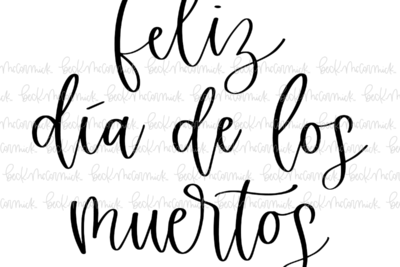 feliz
día de los
muertos